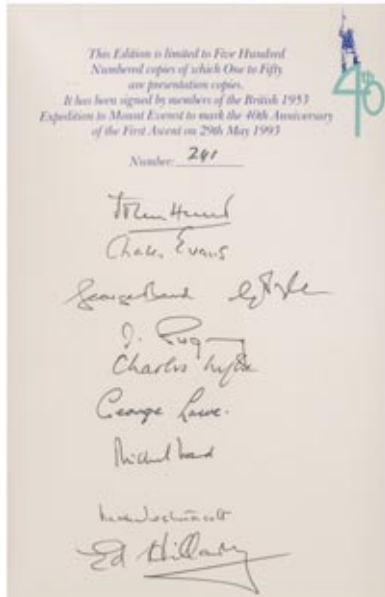 This Edition is limited to Five Hundred
Numbered copies of which One to Fifty
are presentation copies.
It has been signed by members of the British 1953
Expedition to Mount Everest to mark the 40th Anniversary
of the First Ascent on 29th May 1993
40
Number: 241
John Hunt
Charles Evans
George Band
Charles Wylie
George Lowe.
Michael Ward
Ed Hillary